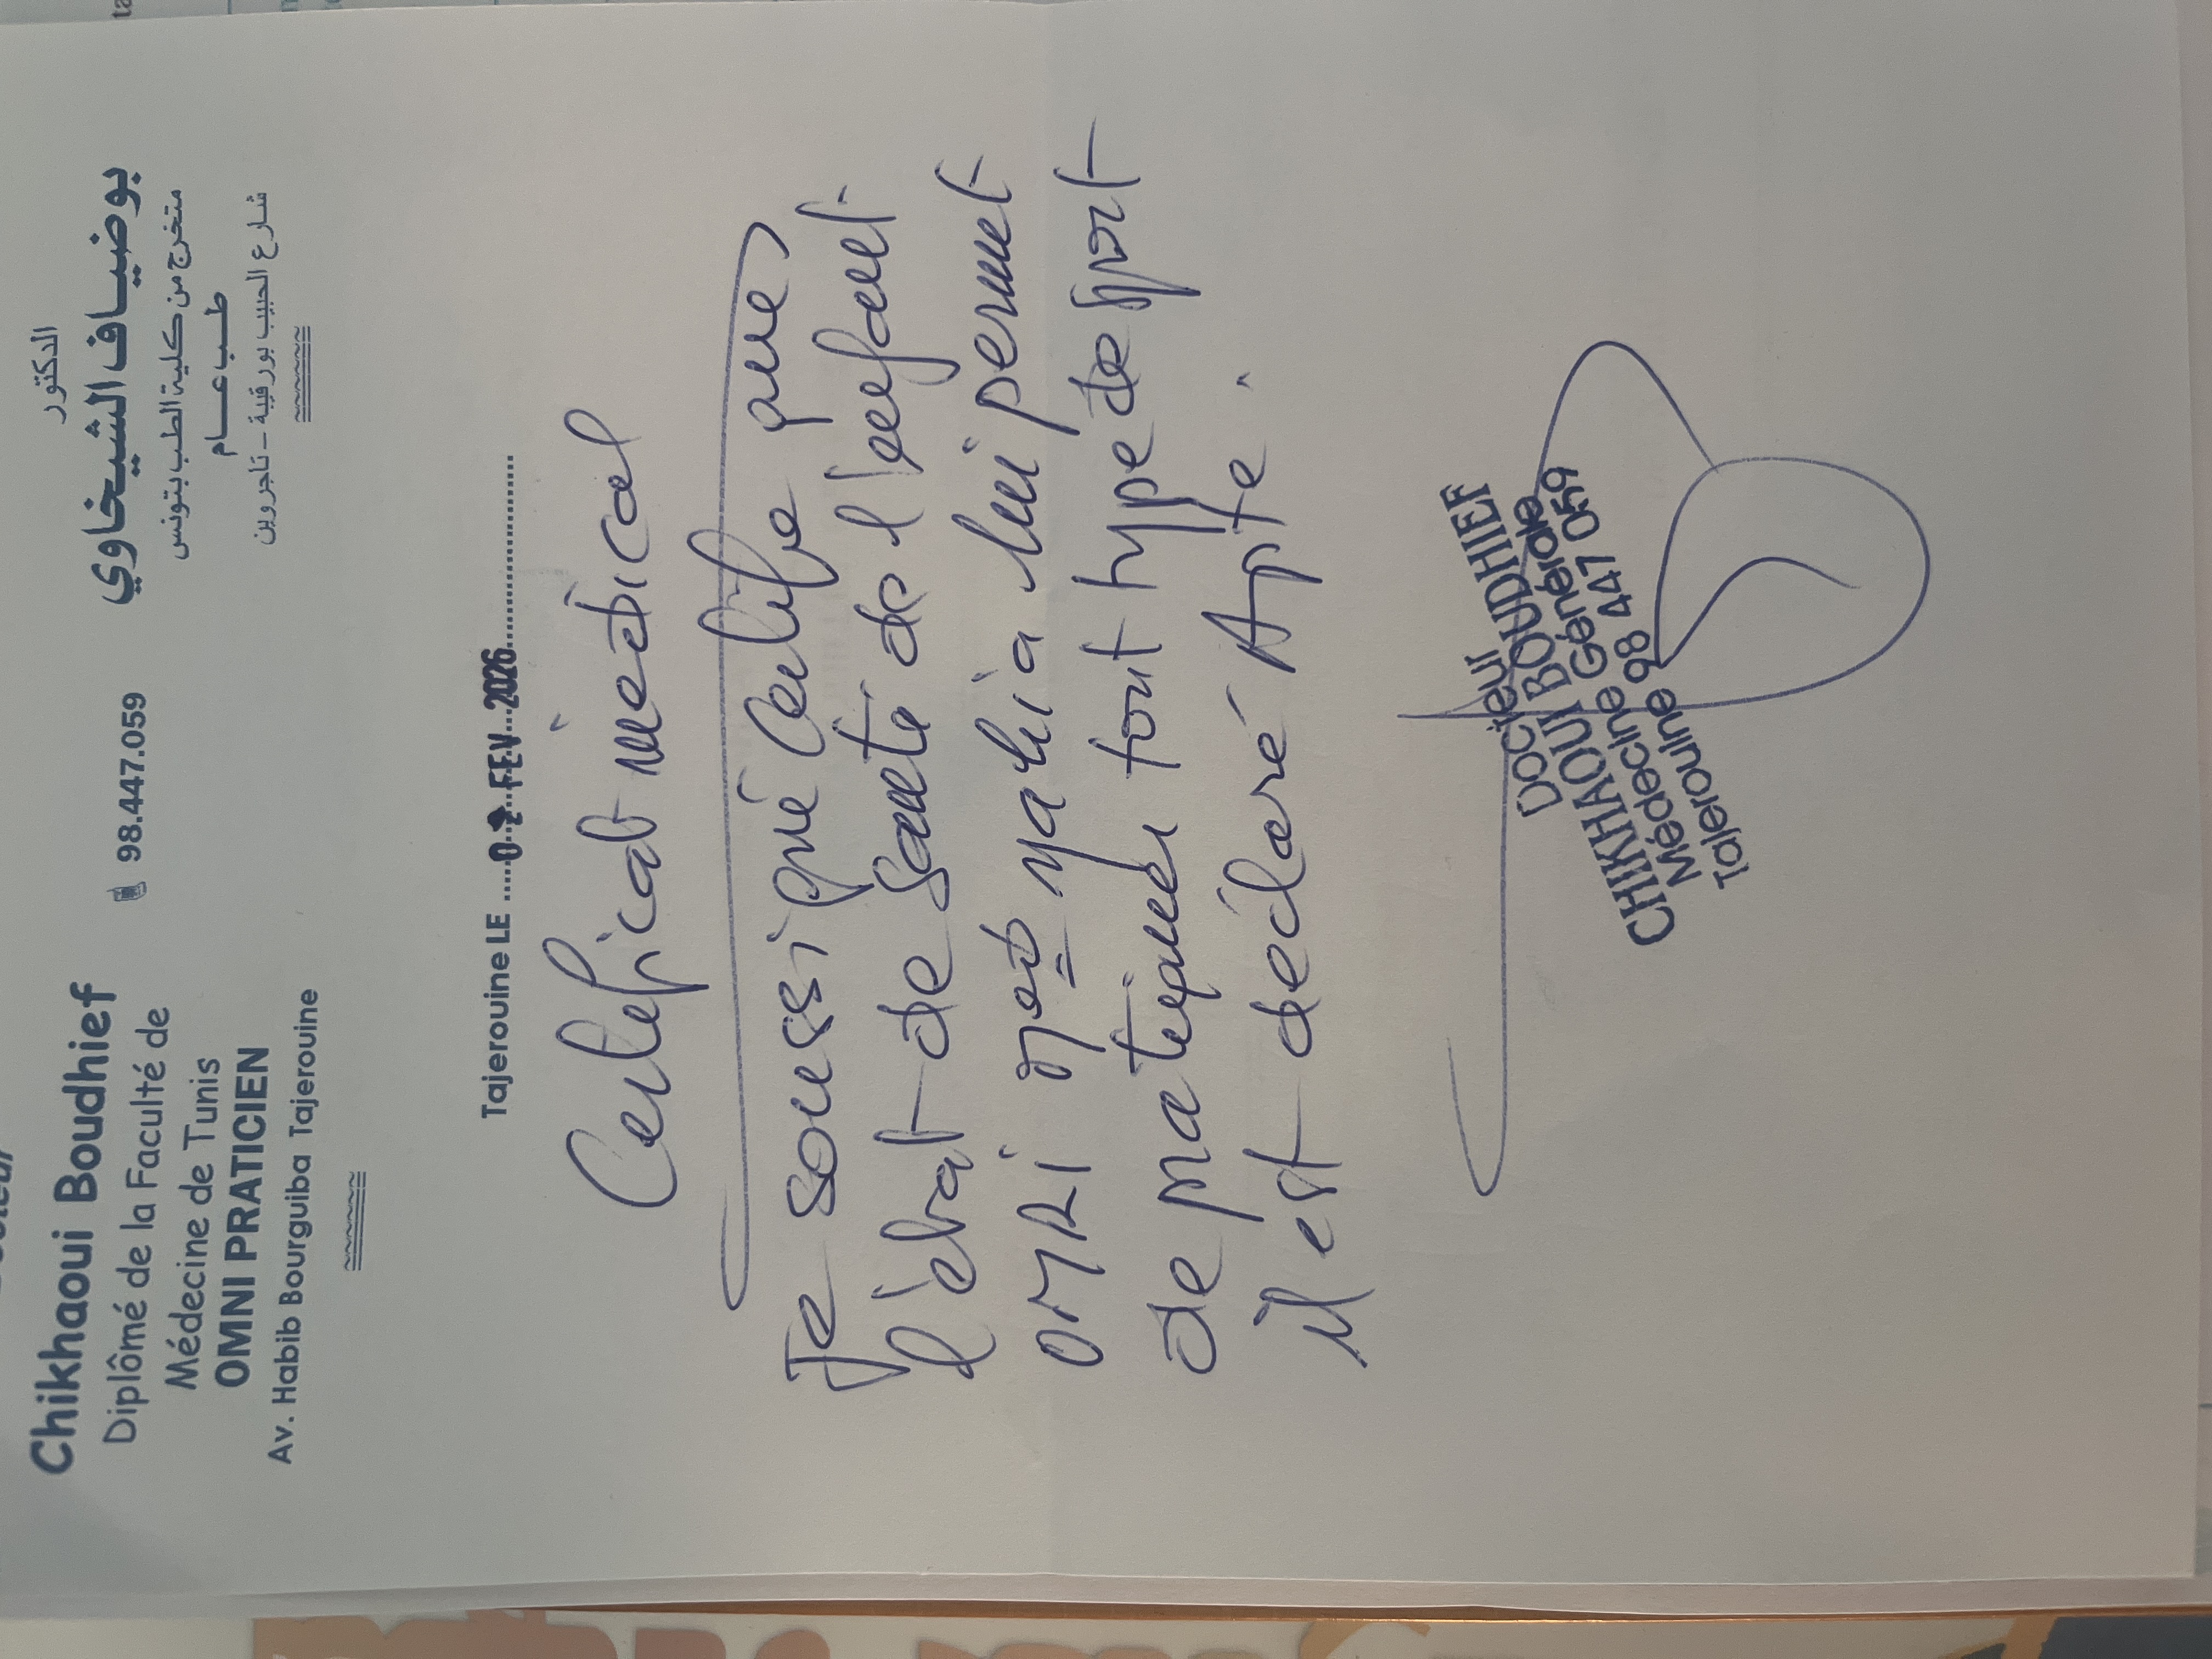 Chikhaoui Boudhief
Diplômé de la Faculté de
Médecine de Tunis
OMNI PRATICIEN
Av. Habib Bourguiba Tajerouine
98.447.059
الدكتور
بوضياف الشيخاوي
متخرج من كلية الطب بتونس
طب عام
شارع الحبيب بورقيبة - تاجروين
Tajerouine LE ....0 2 FEV. 2026....
Certificat médical
Je soussigné Certifie que
l'état de Santé de l'enfant
OMRI Mohamed yahia lui permet
de pratiquer tout type de sport
il est déclaré Apte.
Docteur
CHIKHAOUI BOUDHIEF
Médecine Générale
Tajerouine 98 447 059